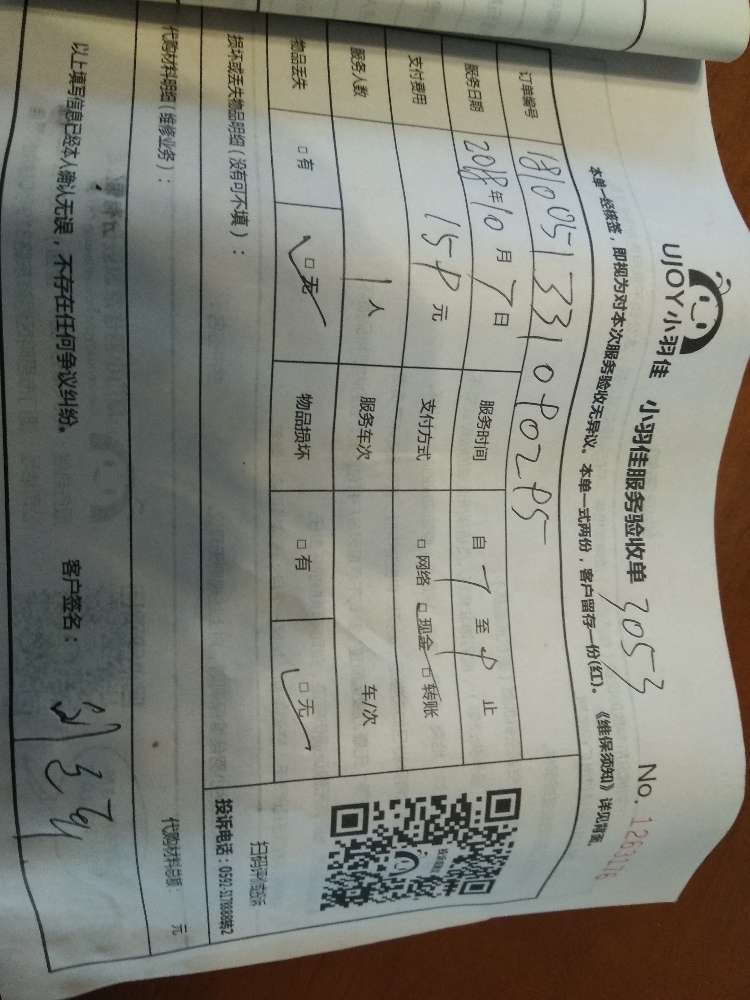 UJOY小羽佳 小羽佳服务验收单 3053 No. 1263176
本单一经核签，即视为对本次服务验收无异议。本单一式两份，客户留存一份(红)。《维保须知》详见背面
订单编号
服务日期 2018年10月7日 服务时间 自 7 至 9 止
支付费用 158元 支付方式 □网络 □现金 □转账
服务人数 1人 服务车次 车/次
物品丢失 □有 □无 物品损坏 □有 □无
损坏或丢失物品明细（没有可不填）：
扫码评价或投诉
投诉电话：0592-5178888转2
代购材料明细（维修业务）： 代购材料总额： 元
以上填写信息已经本人确认无误，不存在任何争议纠纷。 客户签名：